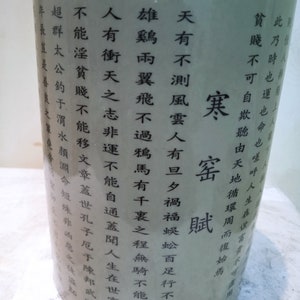 此乃時也運也命也嗟呼人生在世富
貧賤不可自欺聽由天地循環周而復始焉
寒窑賦
天有不測風雲人有旦夕禍福蜈蚣百足行不
雄鷄兩翼飛不過鴉馬有千裏之程無騎不能
人有衝天之志非運不能自通蓋聞人生在世富
不能淫貧賤不能移文章蓋世孔子厄于陳邦武
超群太公釣于渭水顏淵命短殊非凶惡之徒